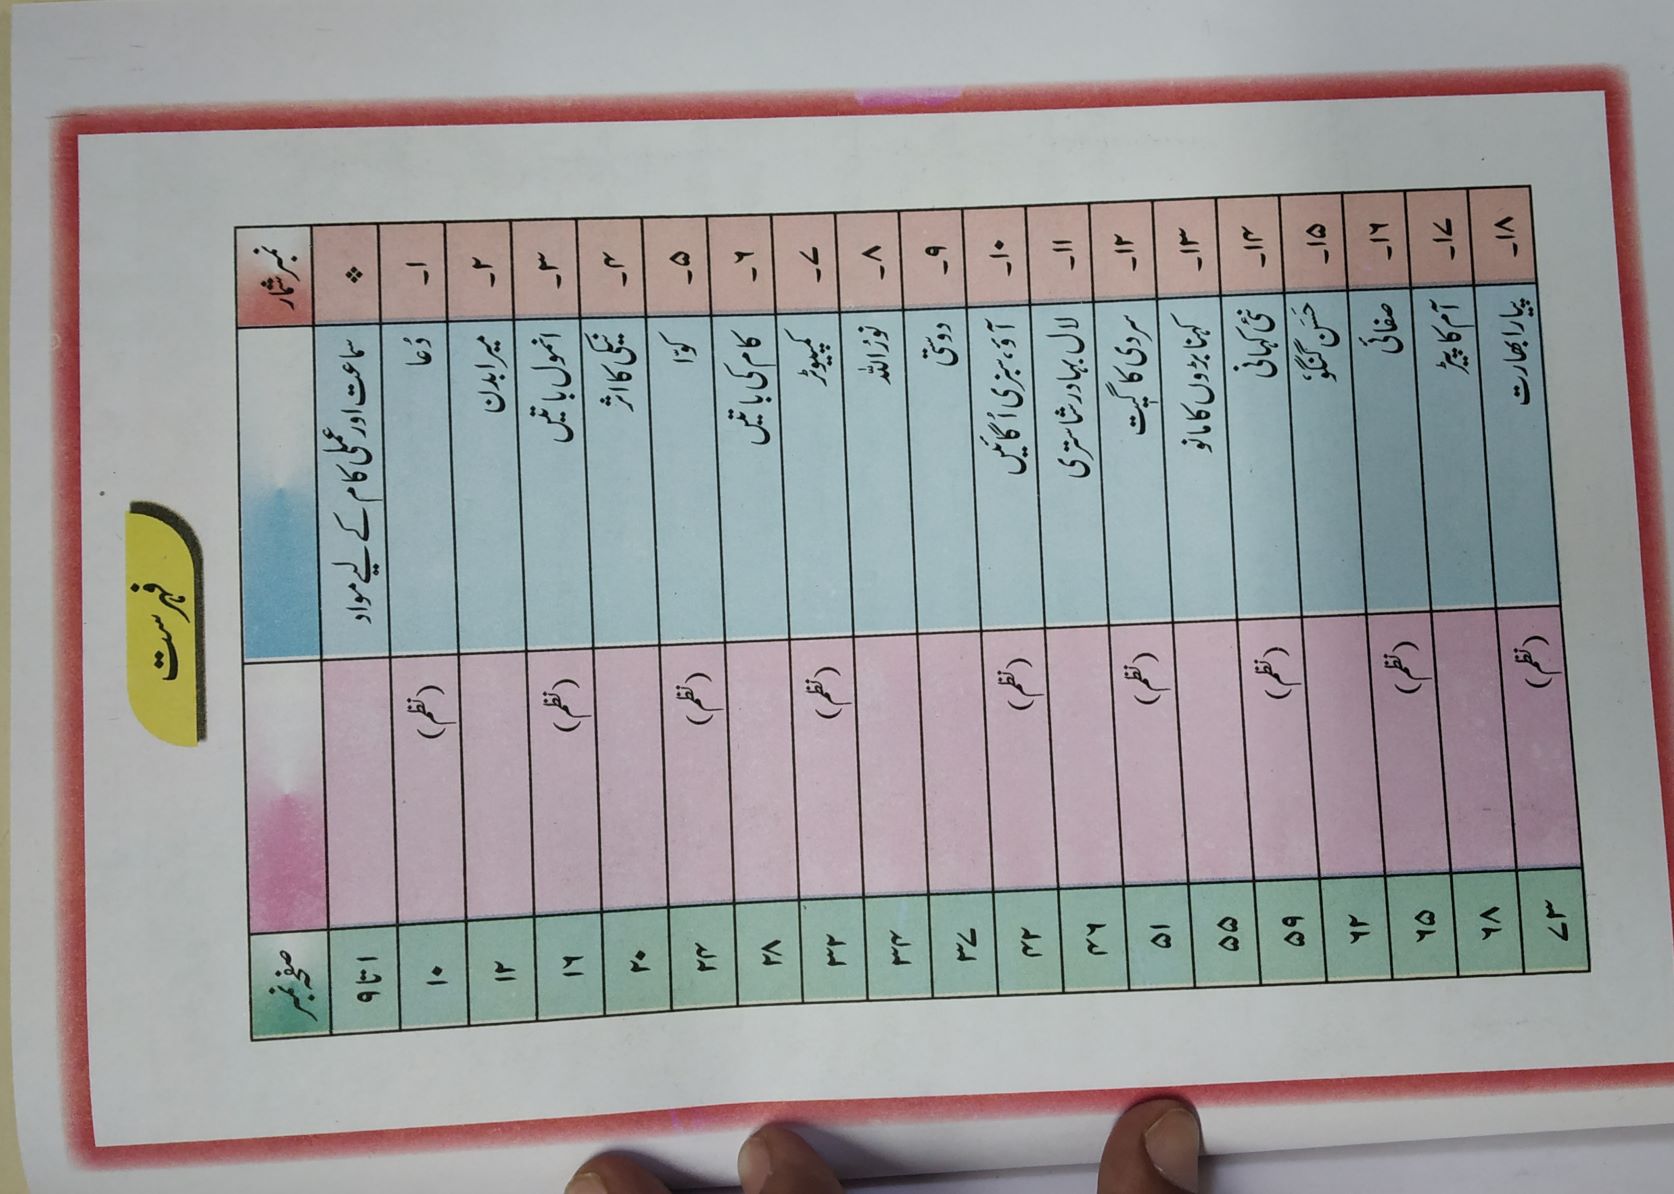 فہرست
نمبر شمار صفحہ نمبر
❖ سماعت اور عملی کام کے لیے مواد ۱ تا ۹
۱۔ دُعا (نظم) ۱۰
۲۔ میرا بدن ۱۲
۳۔ انمول باتیں (نظم) ۱۶
۴۔ نیکی کا اثر ۲۰
۵۔ کوّا (نظم) ۲۴
۶۔ کام کی باتیں ۲۸
۷۔ کمپیوٹر (نظم) ۳۲
۸۔ نورُ اللہ ۳۴
۹۔ دوستی ۳۷
۱۰۔ آؤ، سبزی اُگائیں (نظم) ۴۲
۱۱۔ لال بہادر شاستری ۴۶
۱۲۔ سردی کا گیت (نظم) ۵۱
۱۳۔ کہنا بڑوں کا مانو ۵۵
۱۴۔ نئی کہانی (نظم) ۵۹
۱۵۔ حَسن گنگوٗ ۶۲
۱۶۔ صفائی (نظم) ۶۵
۱۷۔ آم کا پیڑ ۶۸
۱۸۔ پیارا بھارت (نظم) ۷۳